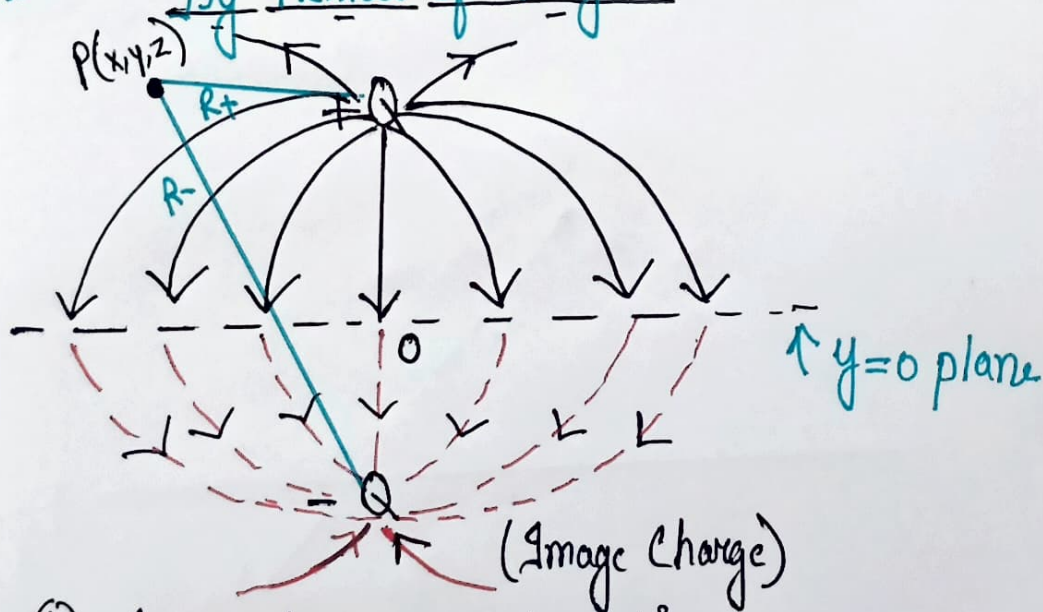 P(x,y,z)
R+
+Q
R-
O
↑ y=0 plane
-Q
(Image Charge)